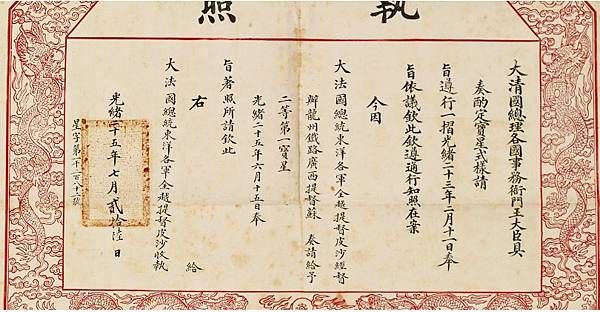 執照
大清國總理各國事務衙門王大臣具
奏酌定寶星式樣請
旨遵行一摺光緒二十三年一月十一日奉
旨依議欽此欽遵通行知照在案
今因
大法國總統東洋各軍全越提督皮沙經督
辦龍州鐵路廣西提督蘇 奏請給予
二等第一寶星
光緒二十五年六月十五日奉
旨著照所請欽此
右 給
大法國總統東洋各軍全越提督皮沙收執
光緒二十五年七月貳拾陸日
星字第二千二百八十二號